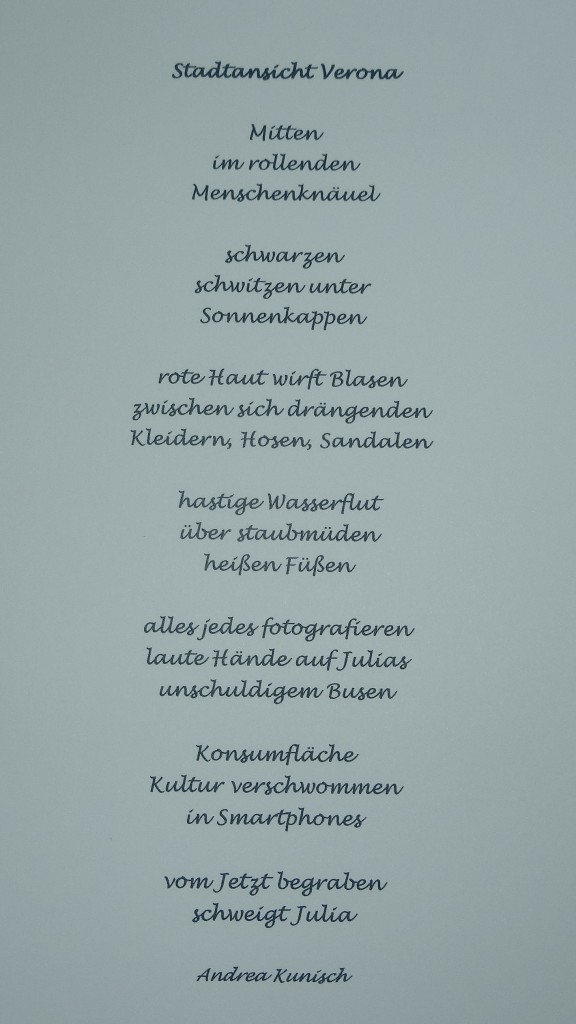 Stadtansicht Verona
Mitten
im rollenden
Menschenknäuel
schwarzen
schwitzen unter
Sonnenkappen
rote Haut wirft Blasen
zwischen sich drängenden
Kleidern, Hosen, Sandalen
hastige Wasserflut
über staubmüden
heißen Füßen
alles jedes fotografieren
laute Hände auf Julias
unschuldigem Busen
Konsumfläche
Kultur verschwommen
in Smartphones
vom Jetzt begraben
schweigt Julia
Andrea Kunisch